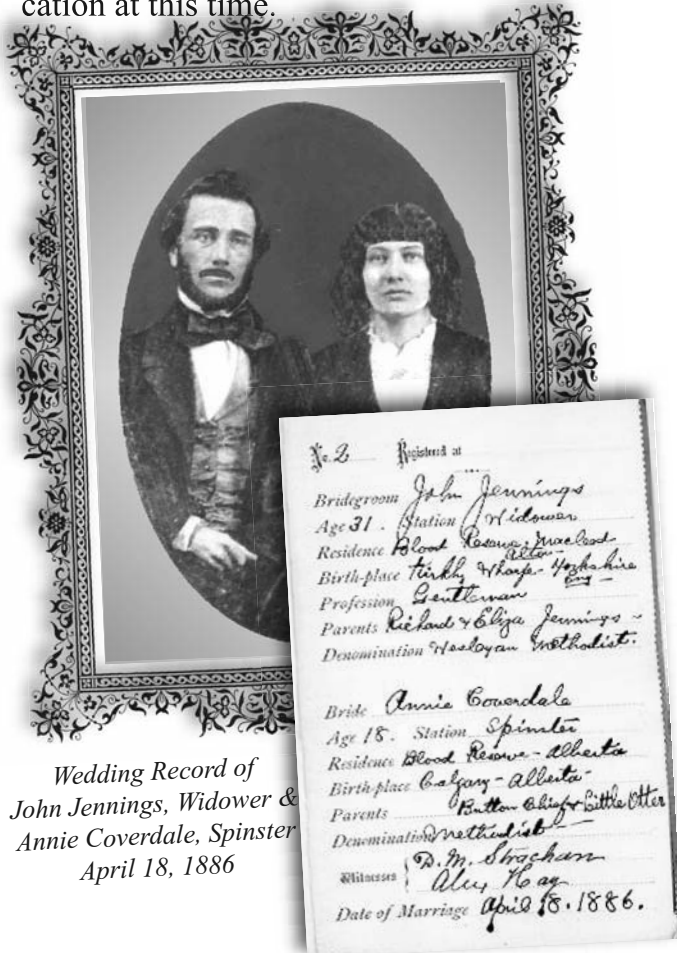 cation at this time.
No. 2 Registered at
Bridegroom John Jennings
Age 31. Station Widower
Residence Blood Reserve. Macleod
Alta-
Birth-place Kirkby Wharfe - Yorkshire
Eng -
Profession Gentleman
Parents Richard & Eliza Jennings -
Denomination Wesleyan Methodist.
Bride Annie Coverdale
Age 18. Station Spinster
Residence Blood Reserve - Alberta
Birth-place Calgary - Alberta -
Parents Button Chief & Little Otter
Denomination Methodist -
Witnesses { D. M. Strachan
Alex Hay
Date of Marriage April 18. 1886.
Wedding Record of
John Jennings, Widower &
Annie Coverdale, Spinster
April 18, 1886